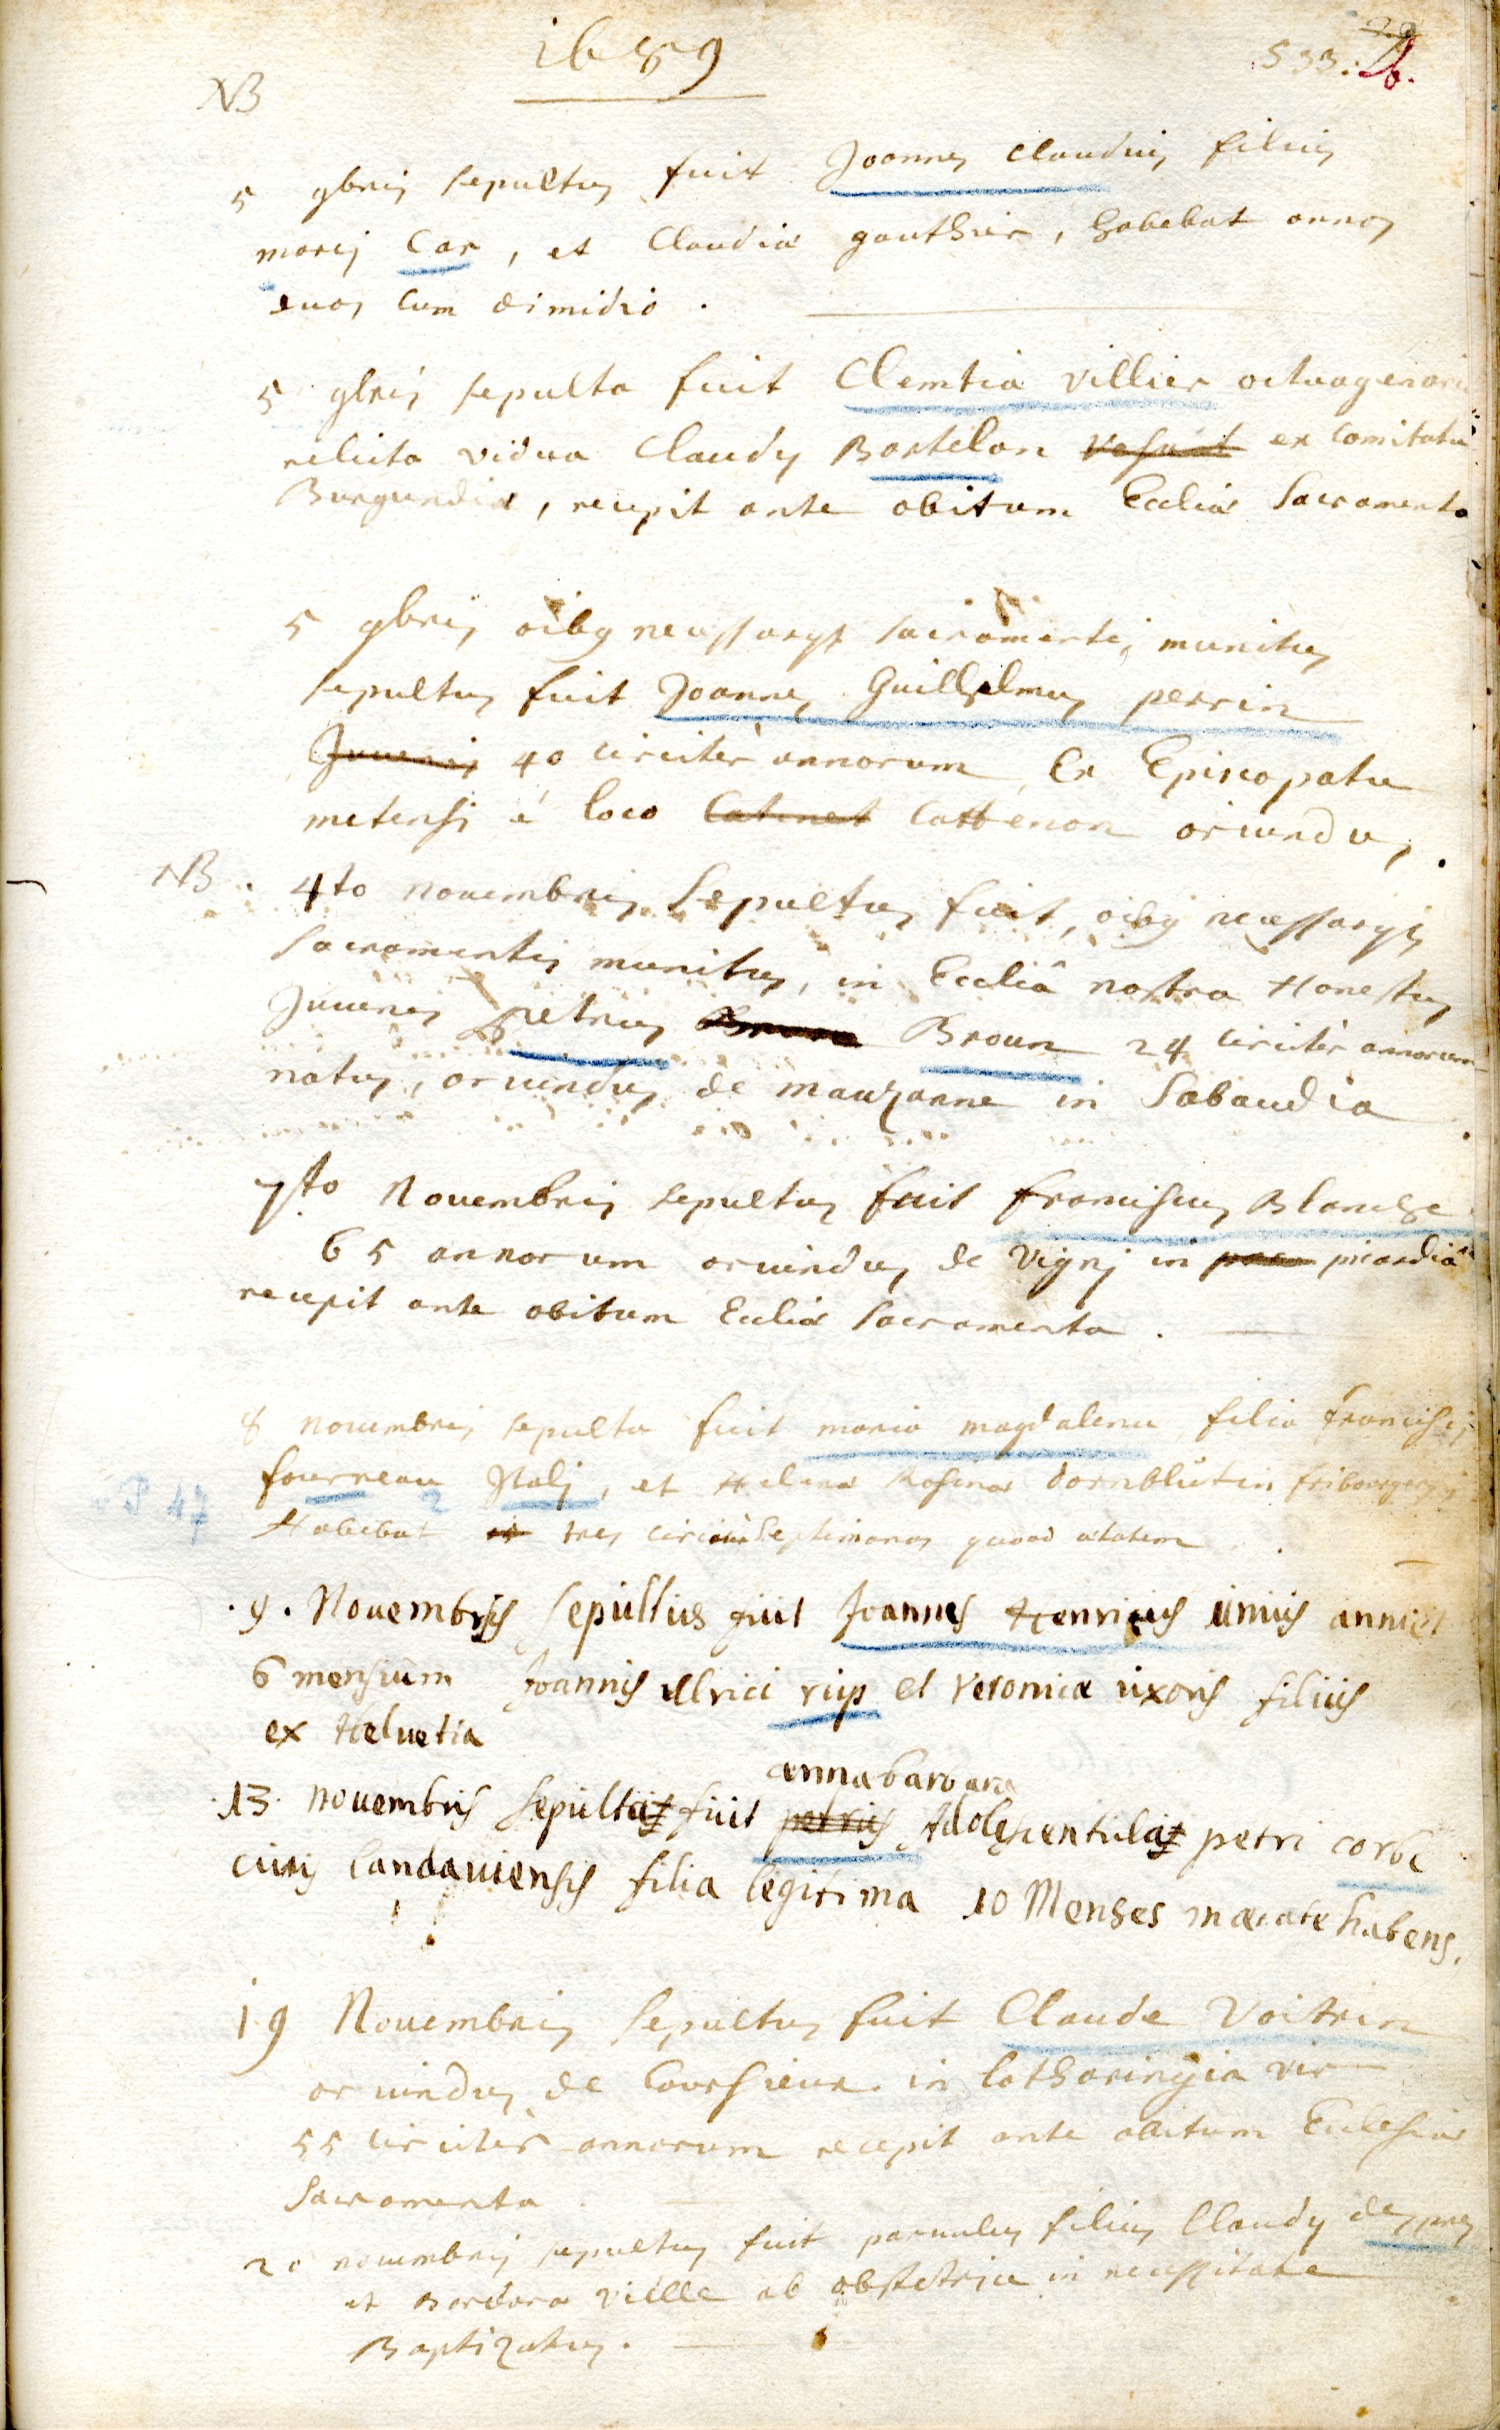 1689
NB
533.
5 9bris sepultus fuit Joannes Claudius filius
marci Car, et Claudiæ gauthier, habebat annos
duos cum dimidio.
5 9bris sepulta fuit Clemtia Villier octuagenaria
relicta vidua Claudy Bartelon ex Comitatu
Burgundiæ, recepit ante obitum Eccliæ Sacramenta
5 9bris oibus necessarys sacramentis munitus
sepultus fuit Joannes Guillhelmus perrin
Juvenis 40 circiter annorum Ex Episcopatu
metensi è loco Catinet Cattenon oriundus.
NB. 4to nouembris Sepultus fuit, oibus necessarijs
Sacramentis munitus, in Eccliâ nostra Honestus
Juuenis petrus Broun 24 circiter annorum
natus, oriundus de mauzanne in Sabaudia
7to Nouembris sepultus fuit franciscus Blanche
65 annorum oriundus de Vignj in picardiâ
recepit ante obitum Eccliæ Sacramenta.
8 nouembris sepulta fuit maria magdalena filia francisci
fourneau Italj, et Helenæ Rosinæ Dornblütin
P 47
2
Habebat tres circiter Septimanas quoad ætatem
.9. Nouembris sepultus fuit Joannes Henricus unius anni et
6 mensium Joannis ulrici rup et Veronicæ uxoris filius
ex Helvetia
anna barbara
.13. nouembris sepulta fuit petrus Adolescentula petri corbe
civis Landaviensis filia legitima 10 Menses in ætate habens.
19 Nouembris Sepultus fuit Claude Voitrin
oriundus de Coursieux in lotharingia vir
55 circiter annorum recepit ante obitum Ecclesiæ
Sacramenta
20 nouembris sepultus fuit paruulus filius Claudy desprez
et Barbara Vielle ab obstetrice in necessitate
Baptizatus.